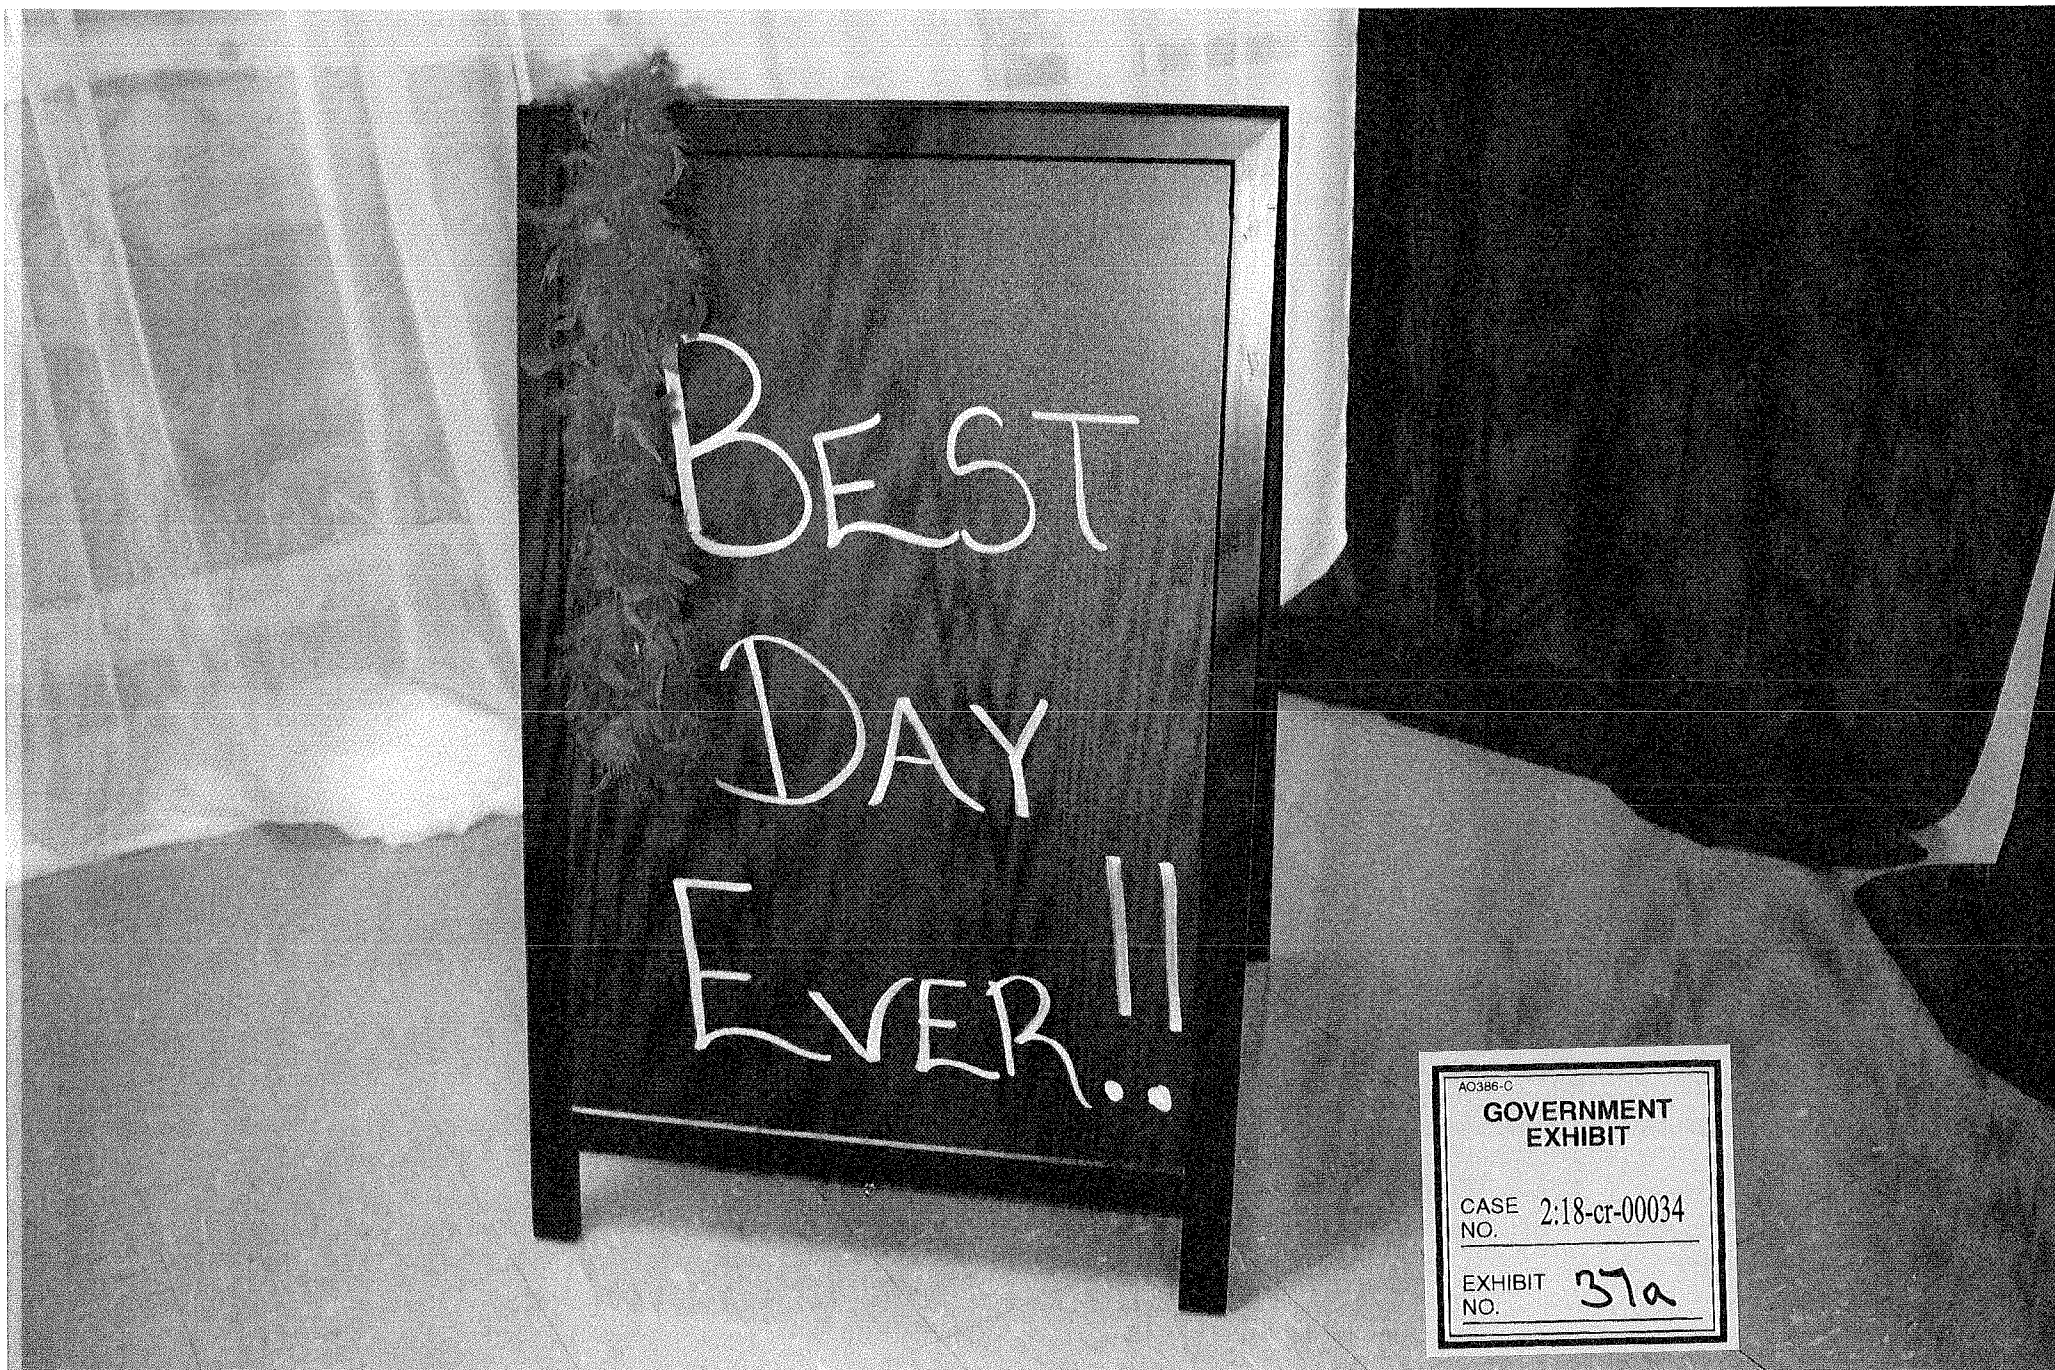 BEST
DAY
EVER!!
AO386-C
GOVERNMENT
EXHIBIT
CASE
NO. 2:18-cr-00034
EXHIBIT
NO. 37a